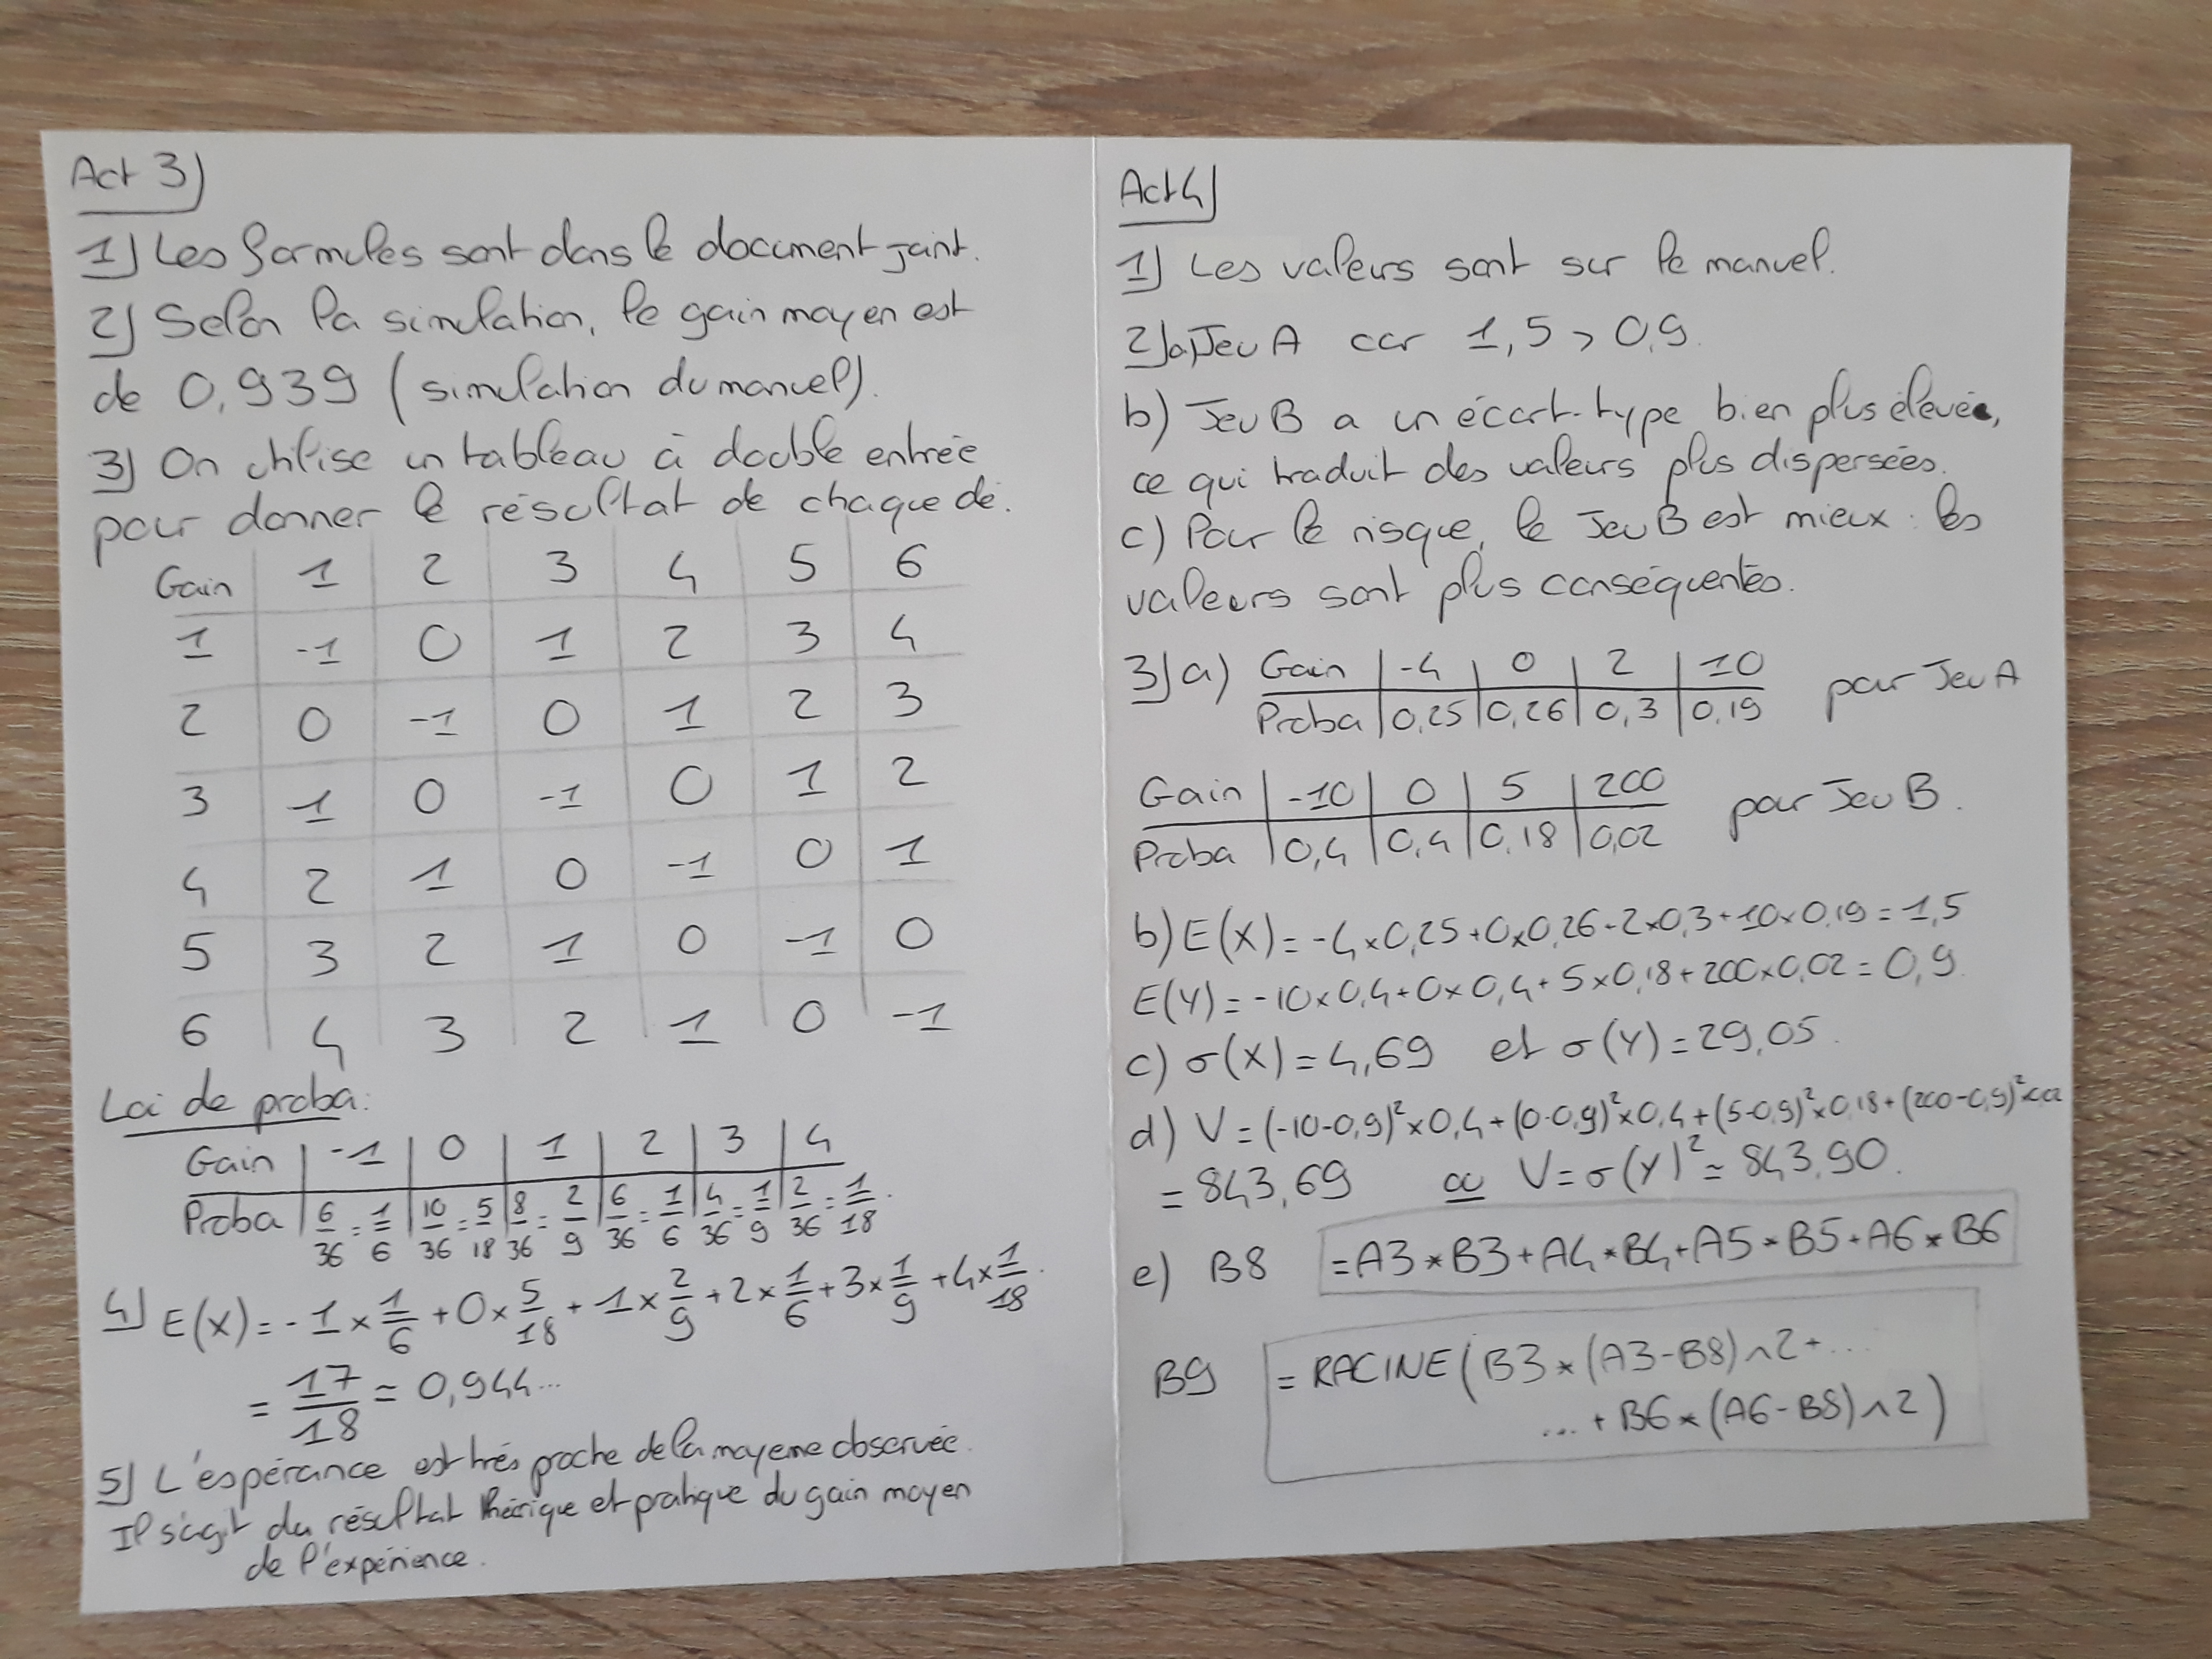 Act 3)
1) Les formules sont dans le document joint.
2) Selon la simulation, le gain moyen est
de 0,939 (simulation du manuel).
3) On utilise un tableau à double entrée
pour donner le résultat de chaque dé.
Gain 1 2 3 4 5 6
1 -1 0 1 2 3 4
2 0 -1 0 1 2 3
3 1 0 -1 0 1 2
4 2 1 0 -1 0 1
5 3 2 1 0 -1 0
6 4 3 2 1 0 -1
Loi de proba:
Gain | -1 | 0 | 1 | 2 | 3 | 4
Proba | 6/36 = 1/6 | 10/36 = 5/18 | 8/36 = 2/9 | 6/36 = 1/6 | 4/36 = 1/9 | 2/36 = 1/18.
4) E(X) = -1 × 1/6 + 0 × 5/18 + 1 × 2/9 + 2 × 1/6 + 3 × 1/9 + 4 × 1/18.
= 17/18 = 0,944...
5) L'espérance est très proche de la moyenne observée.
Il s'agit du résultat théorique et pratique du gain moyen
de l'expérience.
Act 4)
1) Les valeurs sont sur le manuel.
2) a) Jeu A car 1,5 > 0,9.
b) Jeu B a un écart-type bien plus élevé,
ce qui traduit des valeurs plus dispersées.
c) Pour le risque, le Jeu B est mieux : les
valeurs sont plus conséquentes.
3) a) Gain | -4 | 0 | 2 | 10
Proba | 0,25 | 0,26 | 0,3 | 0,19 pour Jeu A
Gain | -10 | 0 | 5 | 200
Proba | 0,4 | 0,4 | 0,18 | 0,02 pour Jeu B.
b) E(X) = -4 × 0,25 + 0 × 0,26 + 2 × 0,3 + 10 × 0,19 = 1,5
E(Y) = -10 × 0,4 + 0 × 0,4 + 5 × 0,18 + 200 × 0,02 = 0,9
c) σ(X) = 4,69 et σ(Y) = 29,05.
d) V = (-10-0,9)² × 0,4 + (0-0,9)² × 0,4 + (5-0,9)² × 0,18 + (200-0,9)² × 0,02
= 843,69 ou V = σ(Y)² = 843,90.
e) B8 =A3*B3+A4*B4+A5*B5+A6*B6
B9 =RACINE(B3*(A3-B8)^2+...
...+B6*(A6-B8)^2)